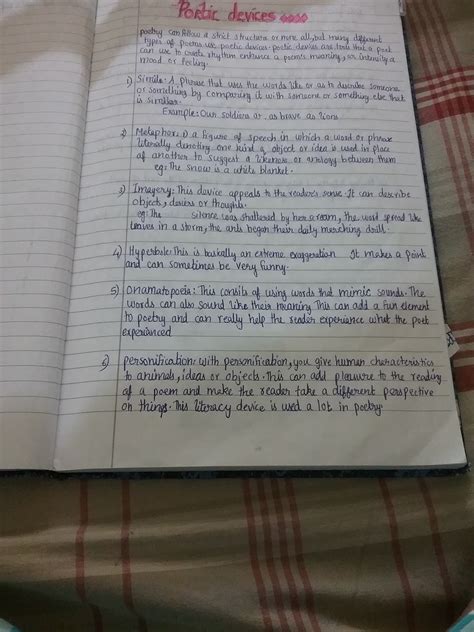 Poetic devices
poetry can follow a strict structure or none at all, but many different
types of poems use poetic devices. poetic devices are tools that a poet
can use to create rhythm, enhance a poem's meaning, or intensify a
mood or feeling.
1) Simile: A phrase that uses the words like or as to describe someone
or something by comparing it with someone or something else that
is similar.
Example: Our soldiers are as brave as lions
2) Metaphor: a figure of speech in which a word or phrase
literally denoting one kind of object or idea is used in place
of another to suggest a likeness or analogy between them
eg: The snow is a white blanket.
3) Imagery: This device appeals to the reader's sense. It can describe
objects, desires or thoughts.
eg: The silence was shattered by her scream, the word spread like
leaves in a storm, the ants began their daily marching drill.
4) Hyperbole: This is basically an extreme exaggeration It makes a point
and can sometimes be very funny.
5) Onamatopoeia: This consits of using words that mimic sounds. The
words can also sound like their meaning This can add a fun element
to poetry and can really help the reader experience what the poet
experienced
6) personification: with personification, you give human characteristics
to animals, ideas or objects. This can add pleasure to the reading
of a poem and make the reader take a different perspective
on things. This literacy device is used a lot in poetry.